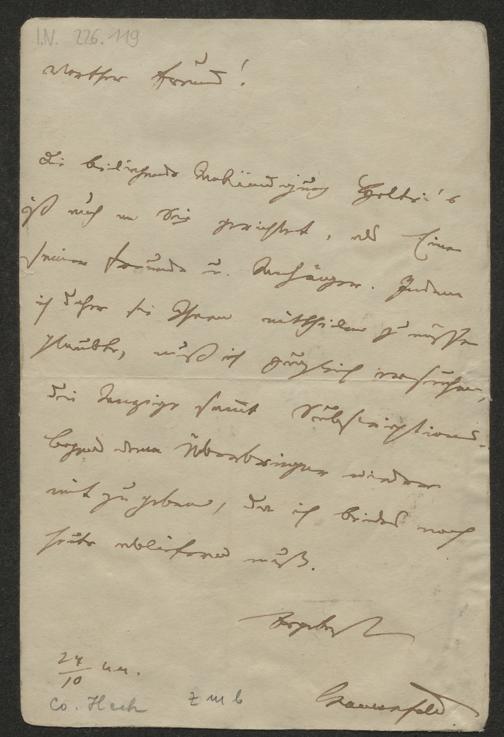 I.N. 226.119
Werther Freund!
Die beiliegende Ankündigung Holtei's
ist auch an Sie gerichtet, als Einen
seiner Freunde u. Anhänger. Indem
ich daher sie Ihnen mittheilen zu müssen
glaubte, muß ich zugleich ersuchen,
die Anzeige sammt Subscriptions-
bogen dem Überbringer wieder
mit zu geben, da ich beides noch
heute abliefern muß.
Ergebenst
24/10
Bauernfeld
Co.